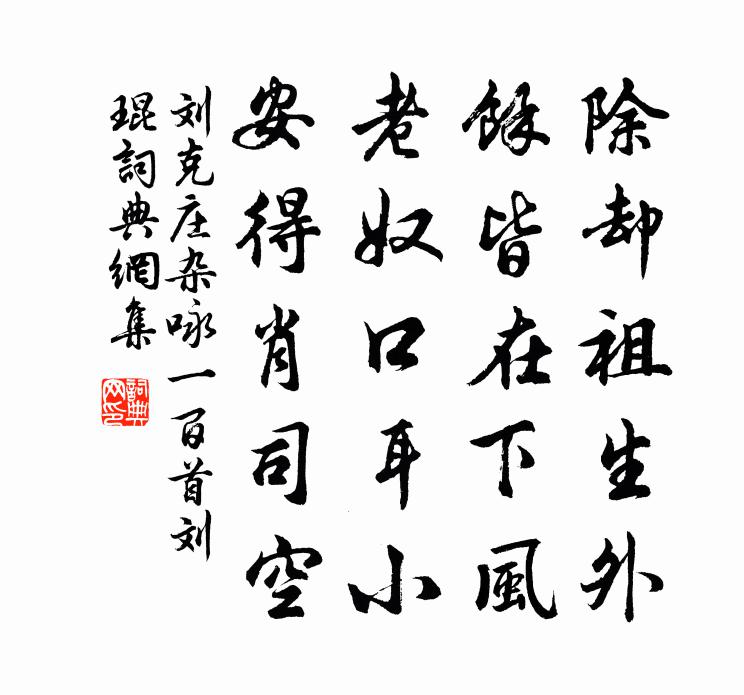 除却祖生外
餘皆在下風
老奴口耳小
安得肖司空
刘克庄杂咏一百首刘
琨詞典網集
詞典
网印